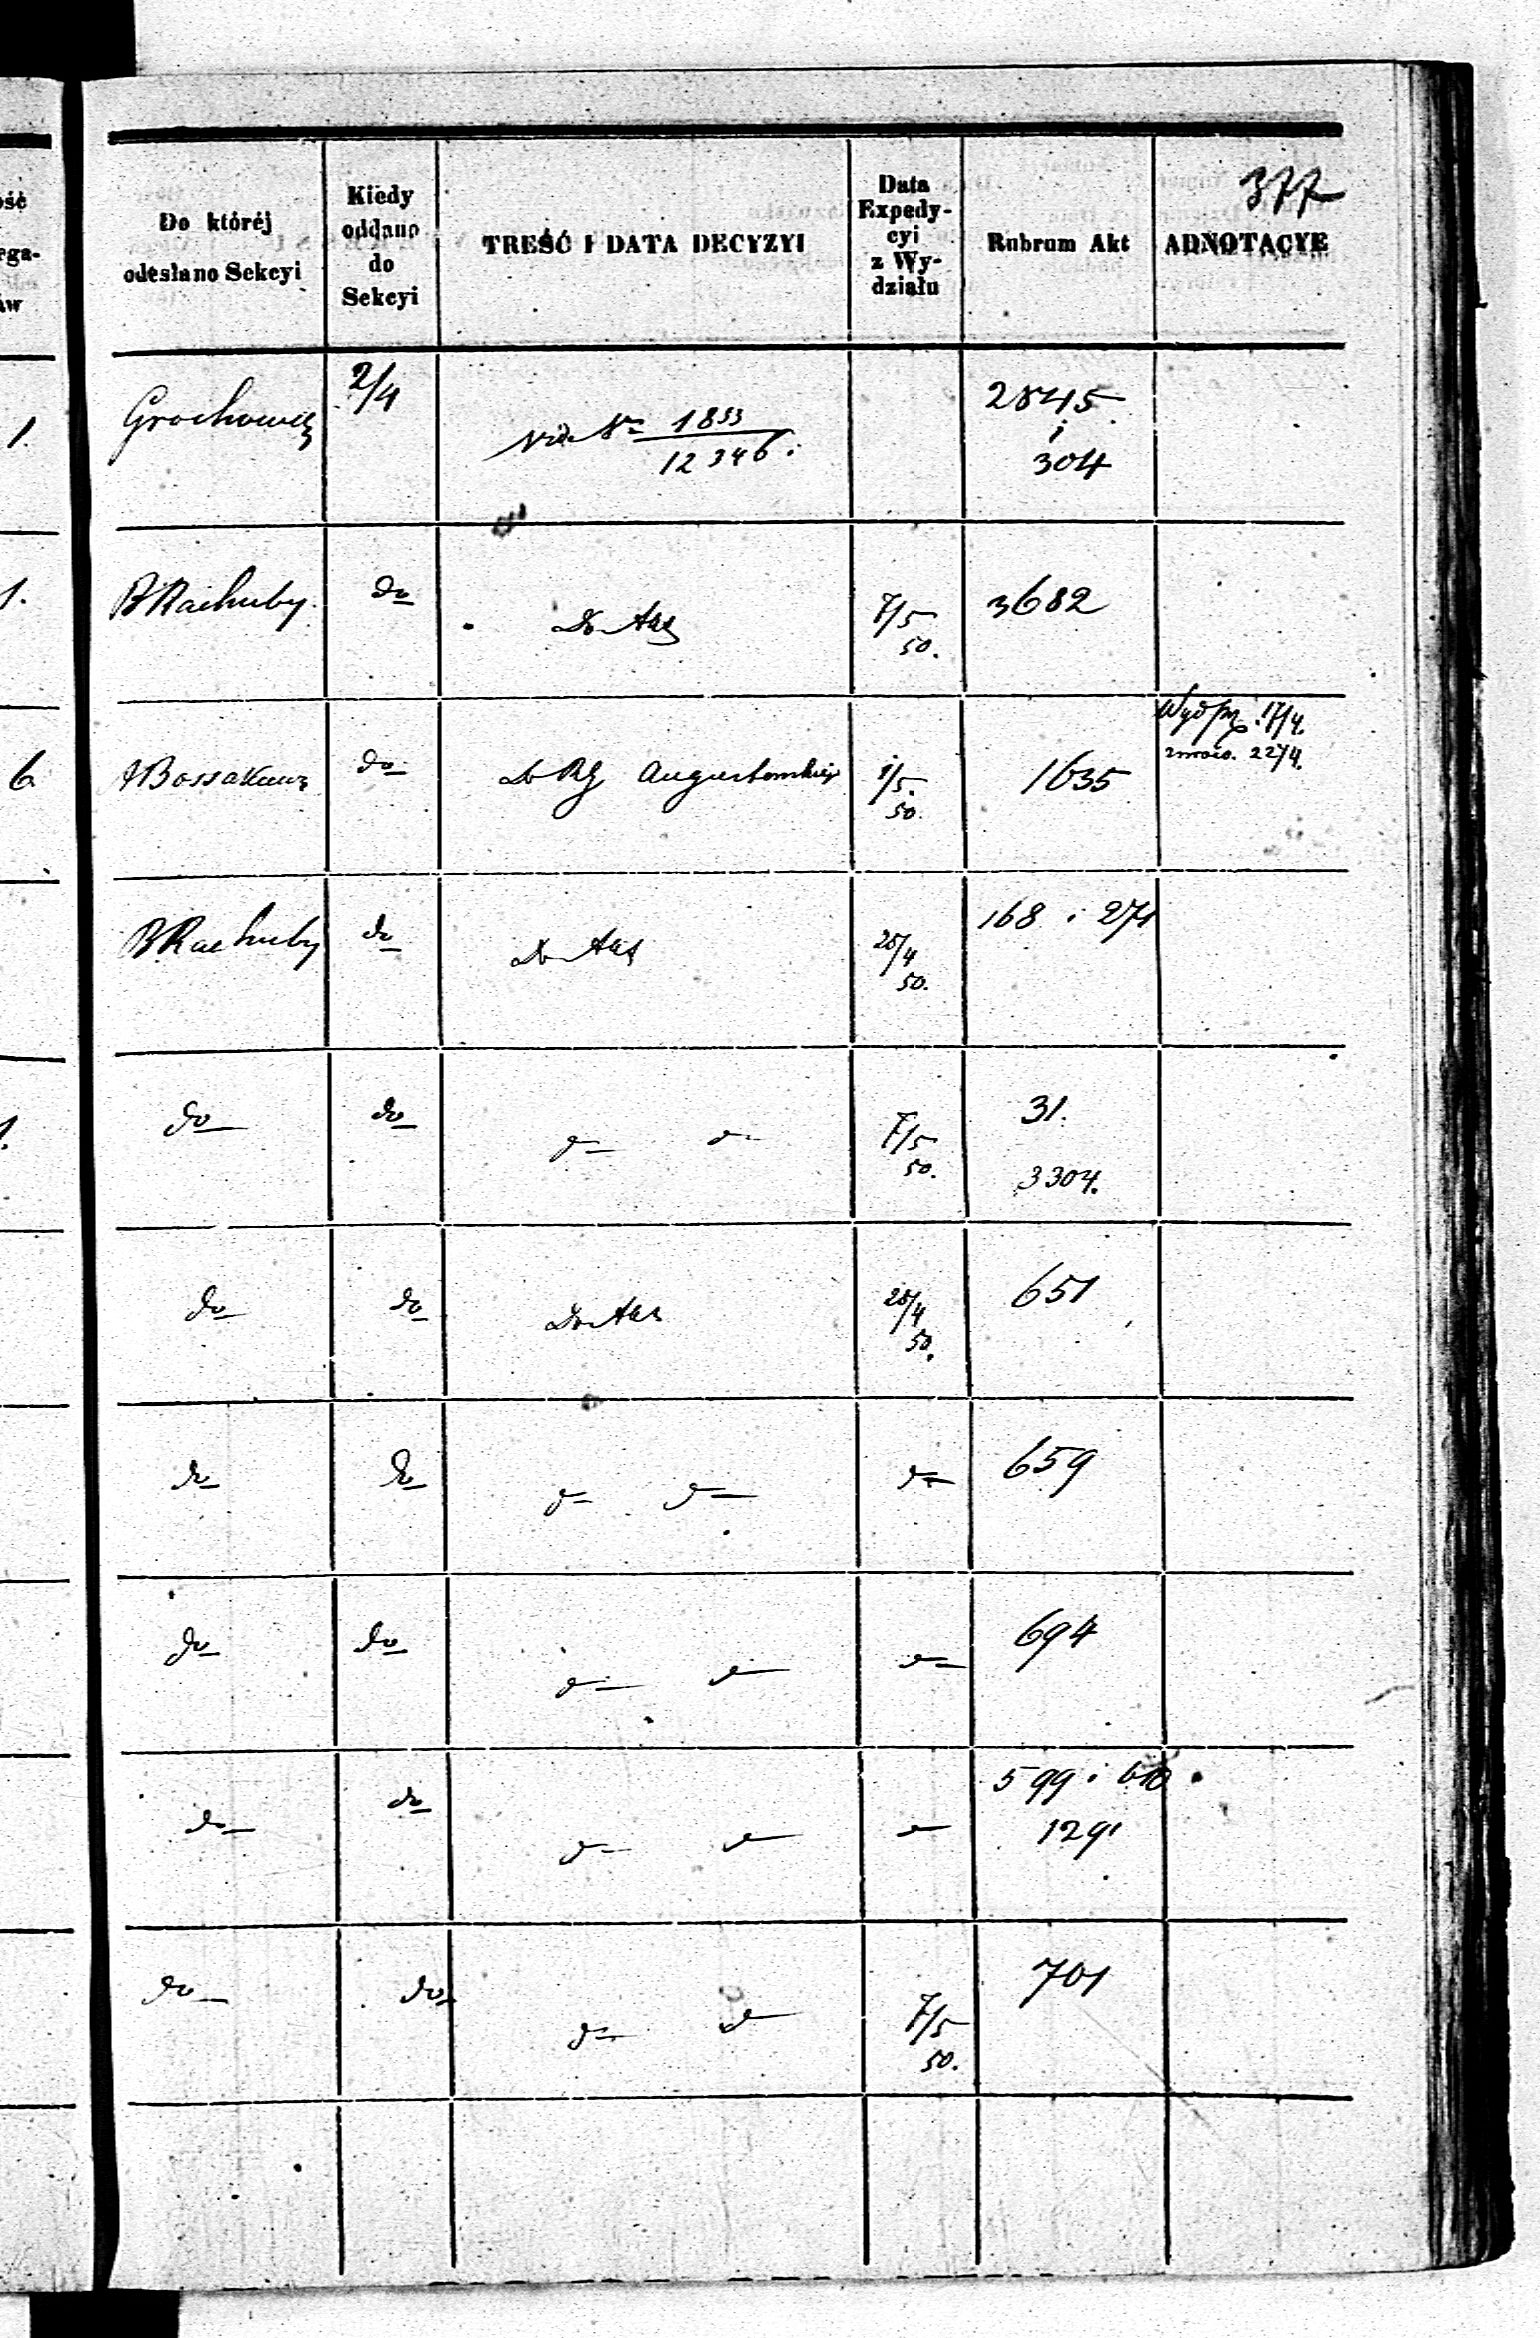 377
ość
rga-
aw
Do któréj
odesłano Sekcyi
Kiedy
oddano
do
Sekcyi
TREŚĆ I DATA DECYZYI
Data
Expedy-
cyi
z Wy-
działu
Rubrum Akt
ADNOTACYE
1. Grochowicz 2/4 vide Nr 1853/12346. 2845 i 304
1. BRachuby do Do Akt 7/5 50. 3682
6 do Do RG Augustowskiego 1/5. 50. 1635 17/4. 22/4.
BRachuby do Do Akt 25/4 50. 168 i 271
1. do do d d 7/5 50. 31. 3304.
do do Do Akt 25/4 50. 651
do do d d d 659
do do d d d 694
do do d d d 599 i 610 1291
do do d d 7/5 50. 701